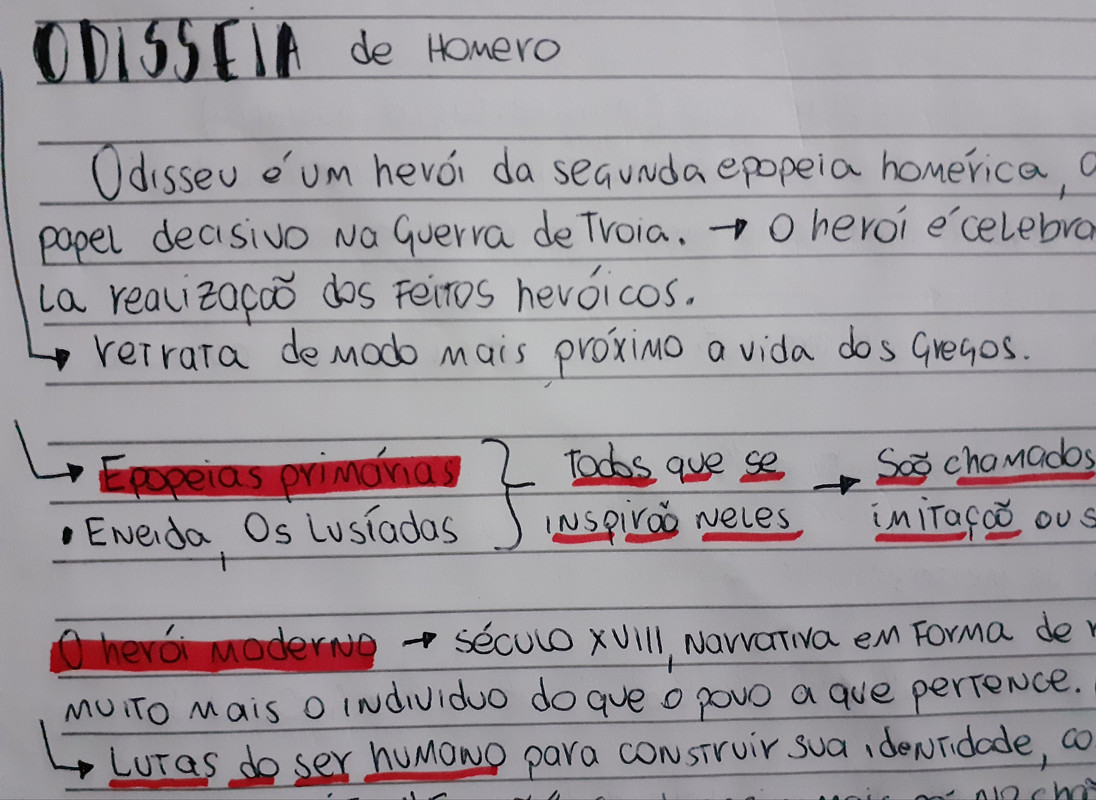 ODISSEIA de Homero
Odisseu é um herói da segunda epopeia homérica,
papel decisivo na Guerra de Troia. → O herói é celebra
la realização dos feitos heróicos.
→ retrata de modo mais próximo a vida dos Gregos.
→ Epopeias primárias } todos que se → São chamados
• Eneida, Os Lusíadas } inspirão neles imitação ou s
O herói moderno → século XVIII, narrativa em forma de r
muito mais o individuo do que o povo a que pertence.
→ Lutas do ser humano para construir sua identidade, co